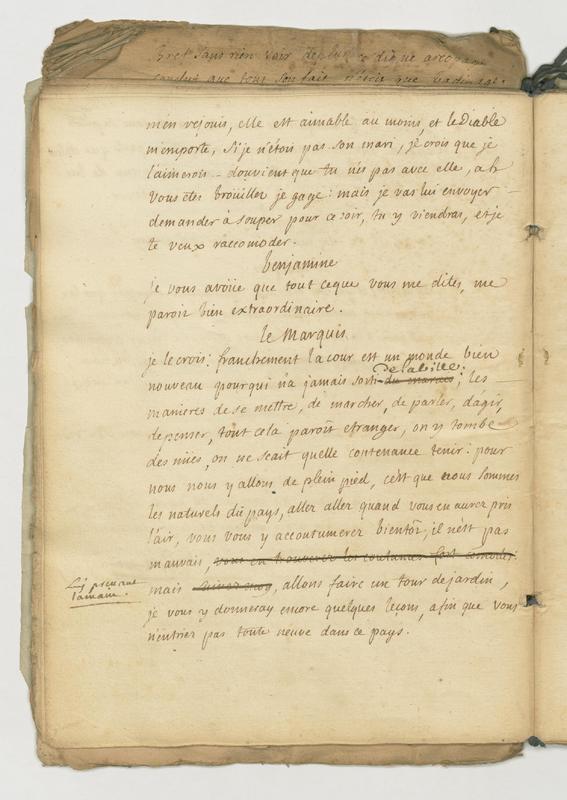 bret sans rien voir
conclut que tous son fait n'étoit que badinage.
m'en rejouis, elle est aimable au moins, et le Diable
m'emporte, si je n'étois pas son mari, je crois que je
l'aimerois _ d'ouvient que tu n'es pas avec elle, ah
vous etes broüillez je gage: mais je vas lui envoyer
demander à souper pour ce soir, tu y viendras, et je
te veux raccomoder.
benjamine
je vous avoüe que tout ceque vous me dites, me
paroit bien extraordinaire.
le Marquis
je le crois: franchement la cour est un monde bien
de la ville
nouveau pour qui n'a jamais sorti du marais; les
manieres de se mettre, de marcher, de parler, d'agir,
de penser, tout cela paroît etranger, on y tombe
des nües, on ne scait quelle contenance tenir: pour
nous nous y allons de plein pied, c'est que nous sommes
les naturels du pays, aller aller quand vous en aurez pris
l'air, vous vous y accoutumerez bientôt, il n'est pas
mauvais, vous en trouverez les coutumes fort comodes.
luy prenant
la main.
mais suivez moy, allons faire un tour de jardin,
je vous y donneray encore quelques leçons, afin que vous
n'entriez pas toute neuve dans ce pays.